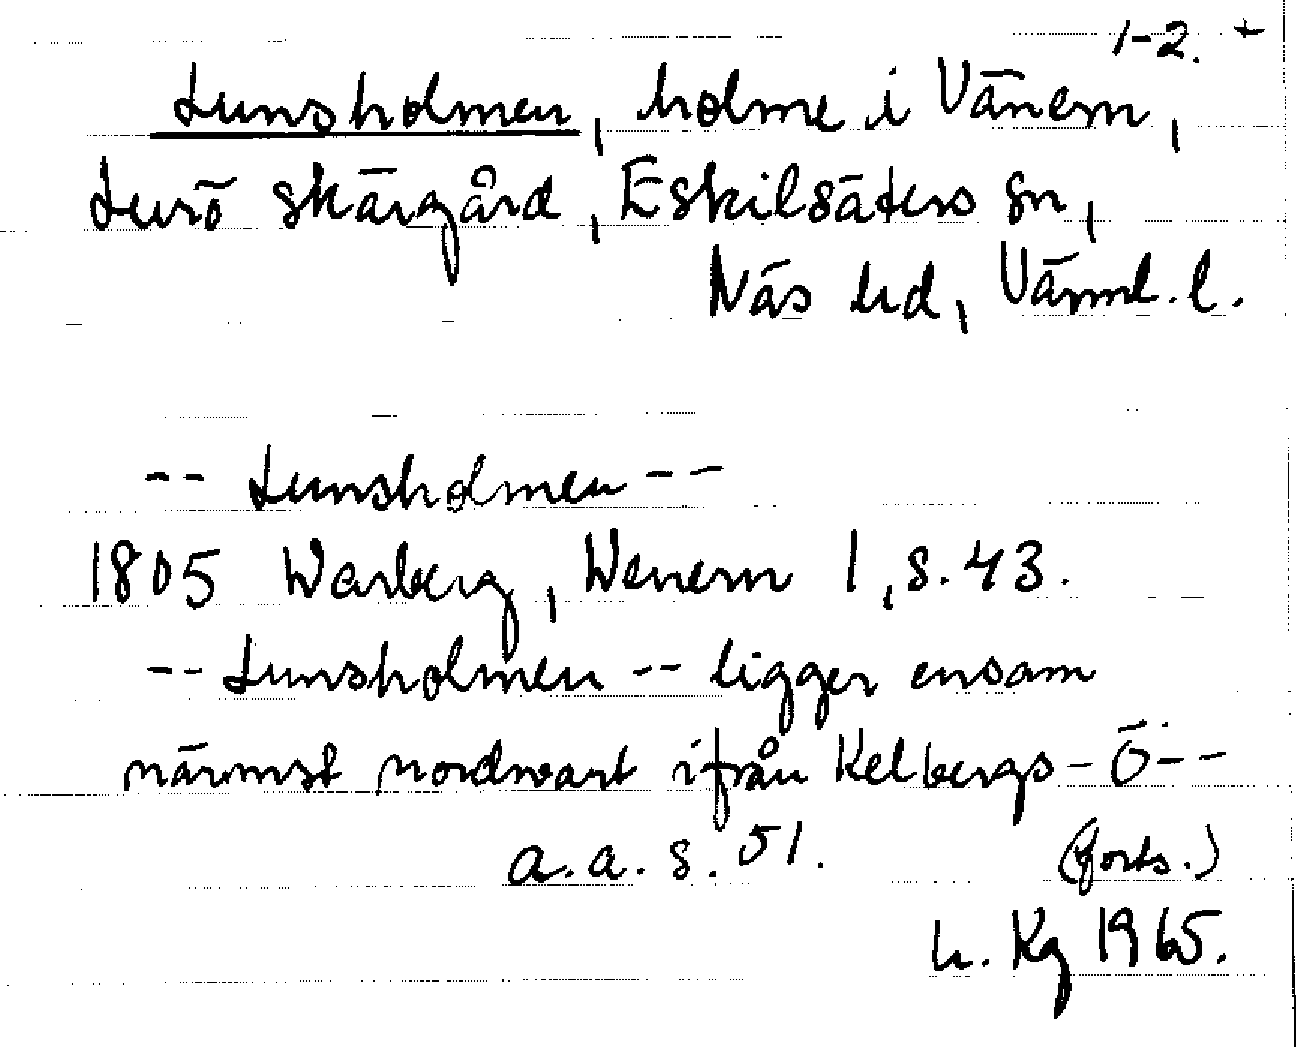 1-2. +
Lunsholmen, holme i Vänern,
Lurö skärgård, Eskilsäters sn,
Näs hd, Värml. l.
-- Lunsholmen --
1805 Warberg, Wenern 1, s. 43.
-- Lunsholmen -- ligger ensam
närmst nordwart ifrån Kelbergs-Ö--
a. a. s. 51. (forts.)
h. Kg 1965.